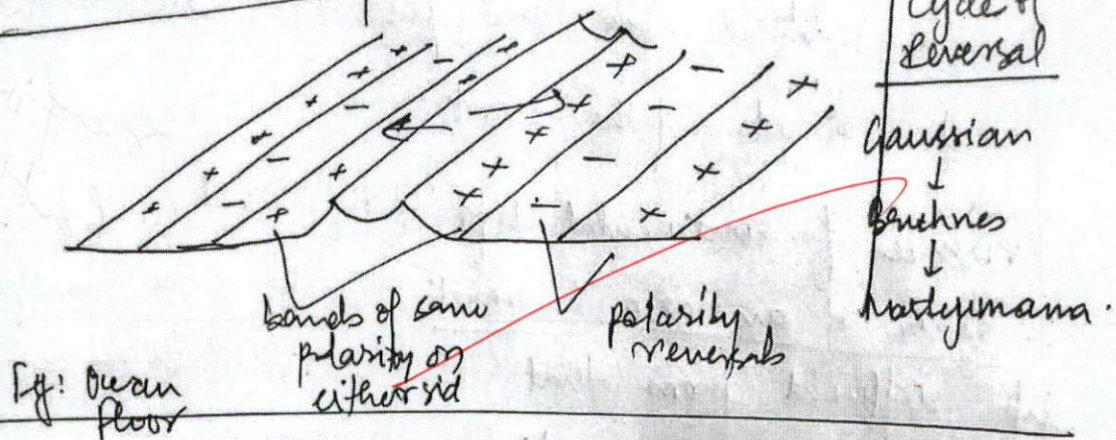 Cycle of
Reversal
Gaussian
↓
Bruhnes
↓
+ + + - + + - + + - + + + - + - + + - + + - + + + - + + - + - + +
bands of same
polarity on
either sid
polarity
reversals
Eg: Ocean
floor